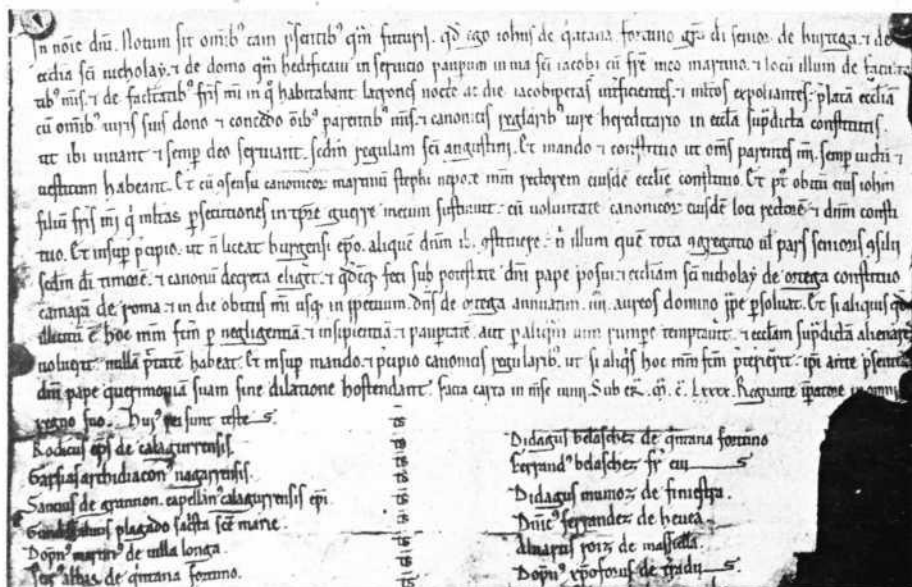 In noie dni. Notum sit omib' tam psentib' qm futuris. qd ego iohns de qitana fortuno gra di senior de burtega. ⁊ de
ecclia sci nicholay. ⁊ de domo qm hedificaui in seruicio paupum in uia sci iacobi cu fre meo martino. ⁊ locu illum de faculta
tib' mis. ⁊ de facltatib' fris mi in q habitabant latrones nocte ac die iacobipetas int'ficientes. ⁊ mltos expoliantes. pfata eccliã
cu omib' iuris suis dono ⁊ concedo oib' parentib' mis. ⁊ canonicis reglarib' iure hereditario in eccla supdicta constitutis.
ut ibi uiuant ⁊ semp deo seruiant. scdm regulam sci augustini. Et mando ⁊ constituo ut oms parentes mi. semp uictu ⁊
uestitum habeant. Et cu gsensu canonicor martinu stephi nepote mm rectorem eiusde ecclie constituo. Et pt obitu eius iohm
filiu fris mi q mltas psecutiones in tpre guerre mecum sustinuit. cu uoluntate canonicor eiusde loci rectore ⁊ dnm consti
tuo. Et insup pcipio. ut n liceat burgensi epo. alique dnm ib. gstituere. n illum que tota ggregatio ul pars senioris gsilii
scdm di timore. ⁊ canonu decreta eligit. ⁊ qdcq feci sub potestate dni pape posui. ⁊ eccliam sci nicholay de ortega constituo
camara de roma. ⁊ in die obitus mi usq in ppetuum. dns de ortega annuatim. iiii. aureos domino ppe psoluat. Et si aliquis
hoc mm fcm p negligentia. ⁊ insipientia. ⁊ pauptate. aut p aliqm uim rumpe temptauit. ⁊ ecclam supdicta alienare
uoluerit. nulla ptate habeat. Et insup mando. ⁊ pcipio canonicis regularib'. ut si aliqs hoc mm fcm pterierit. ipi ante psentia
dni pape querimonia suam sine dilatione hostendant. Facta carta in mse iunii. Sub era. M. C. Lxxxx. Regnante ipatore in omni
regno suo. Hui' rei sunt teste s.
Rodicus eps de calagurrensis. ts
Garsias archidiacon' nagarrensis. ts
Sancius de grannon. capellan' calagurrensis epi. ts
Gundisaluus plagado sacsta sce marie. ts
Dopn' martin' de uilla longa. ts
abbas de qintana fortuno. ts
Didagus belaschez de qintana fortuno
Ferrand' belaschez fr eiu s
Didagus munioz de finiestra.
Dnic' ferrandez de
Aluarus roiz de
Dopn' xpoforus de s